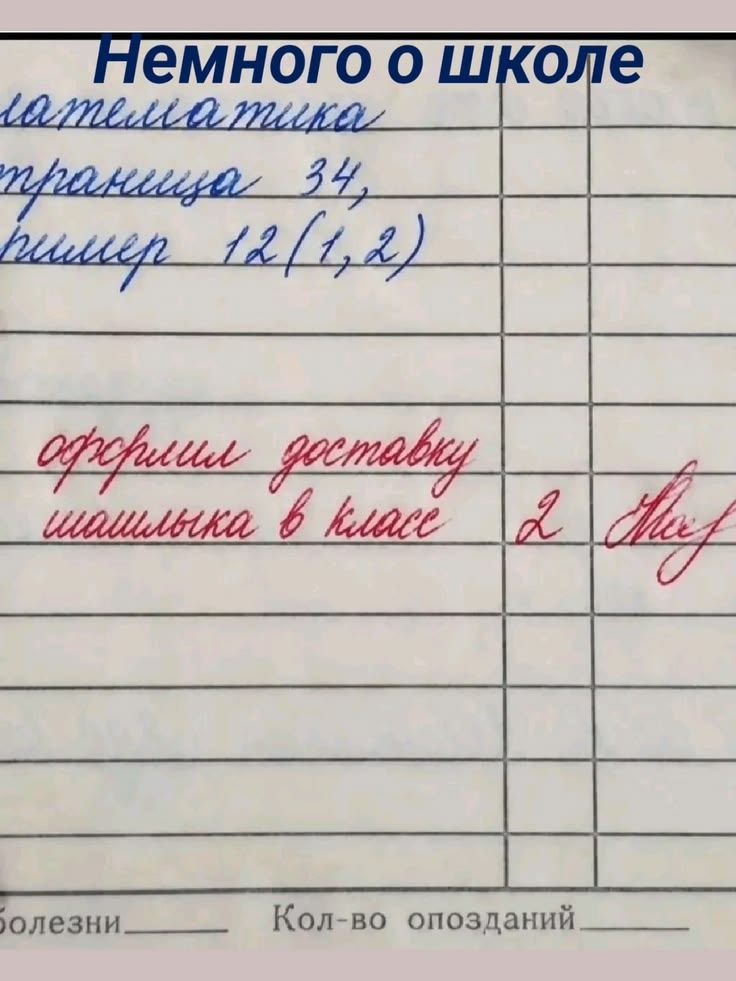 Немного о школе
математика
страница 34,
пример 12(1,2)
оформил доставку
шашлыка в класс 2
болезни Кол-во опозданий